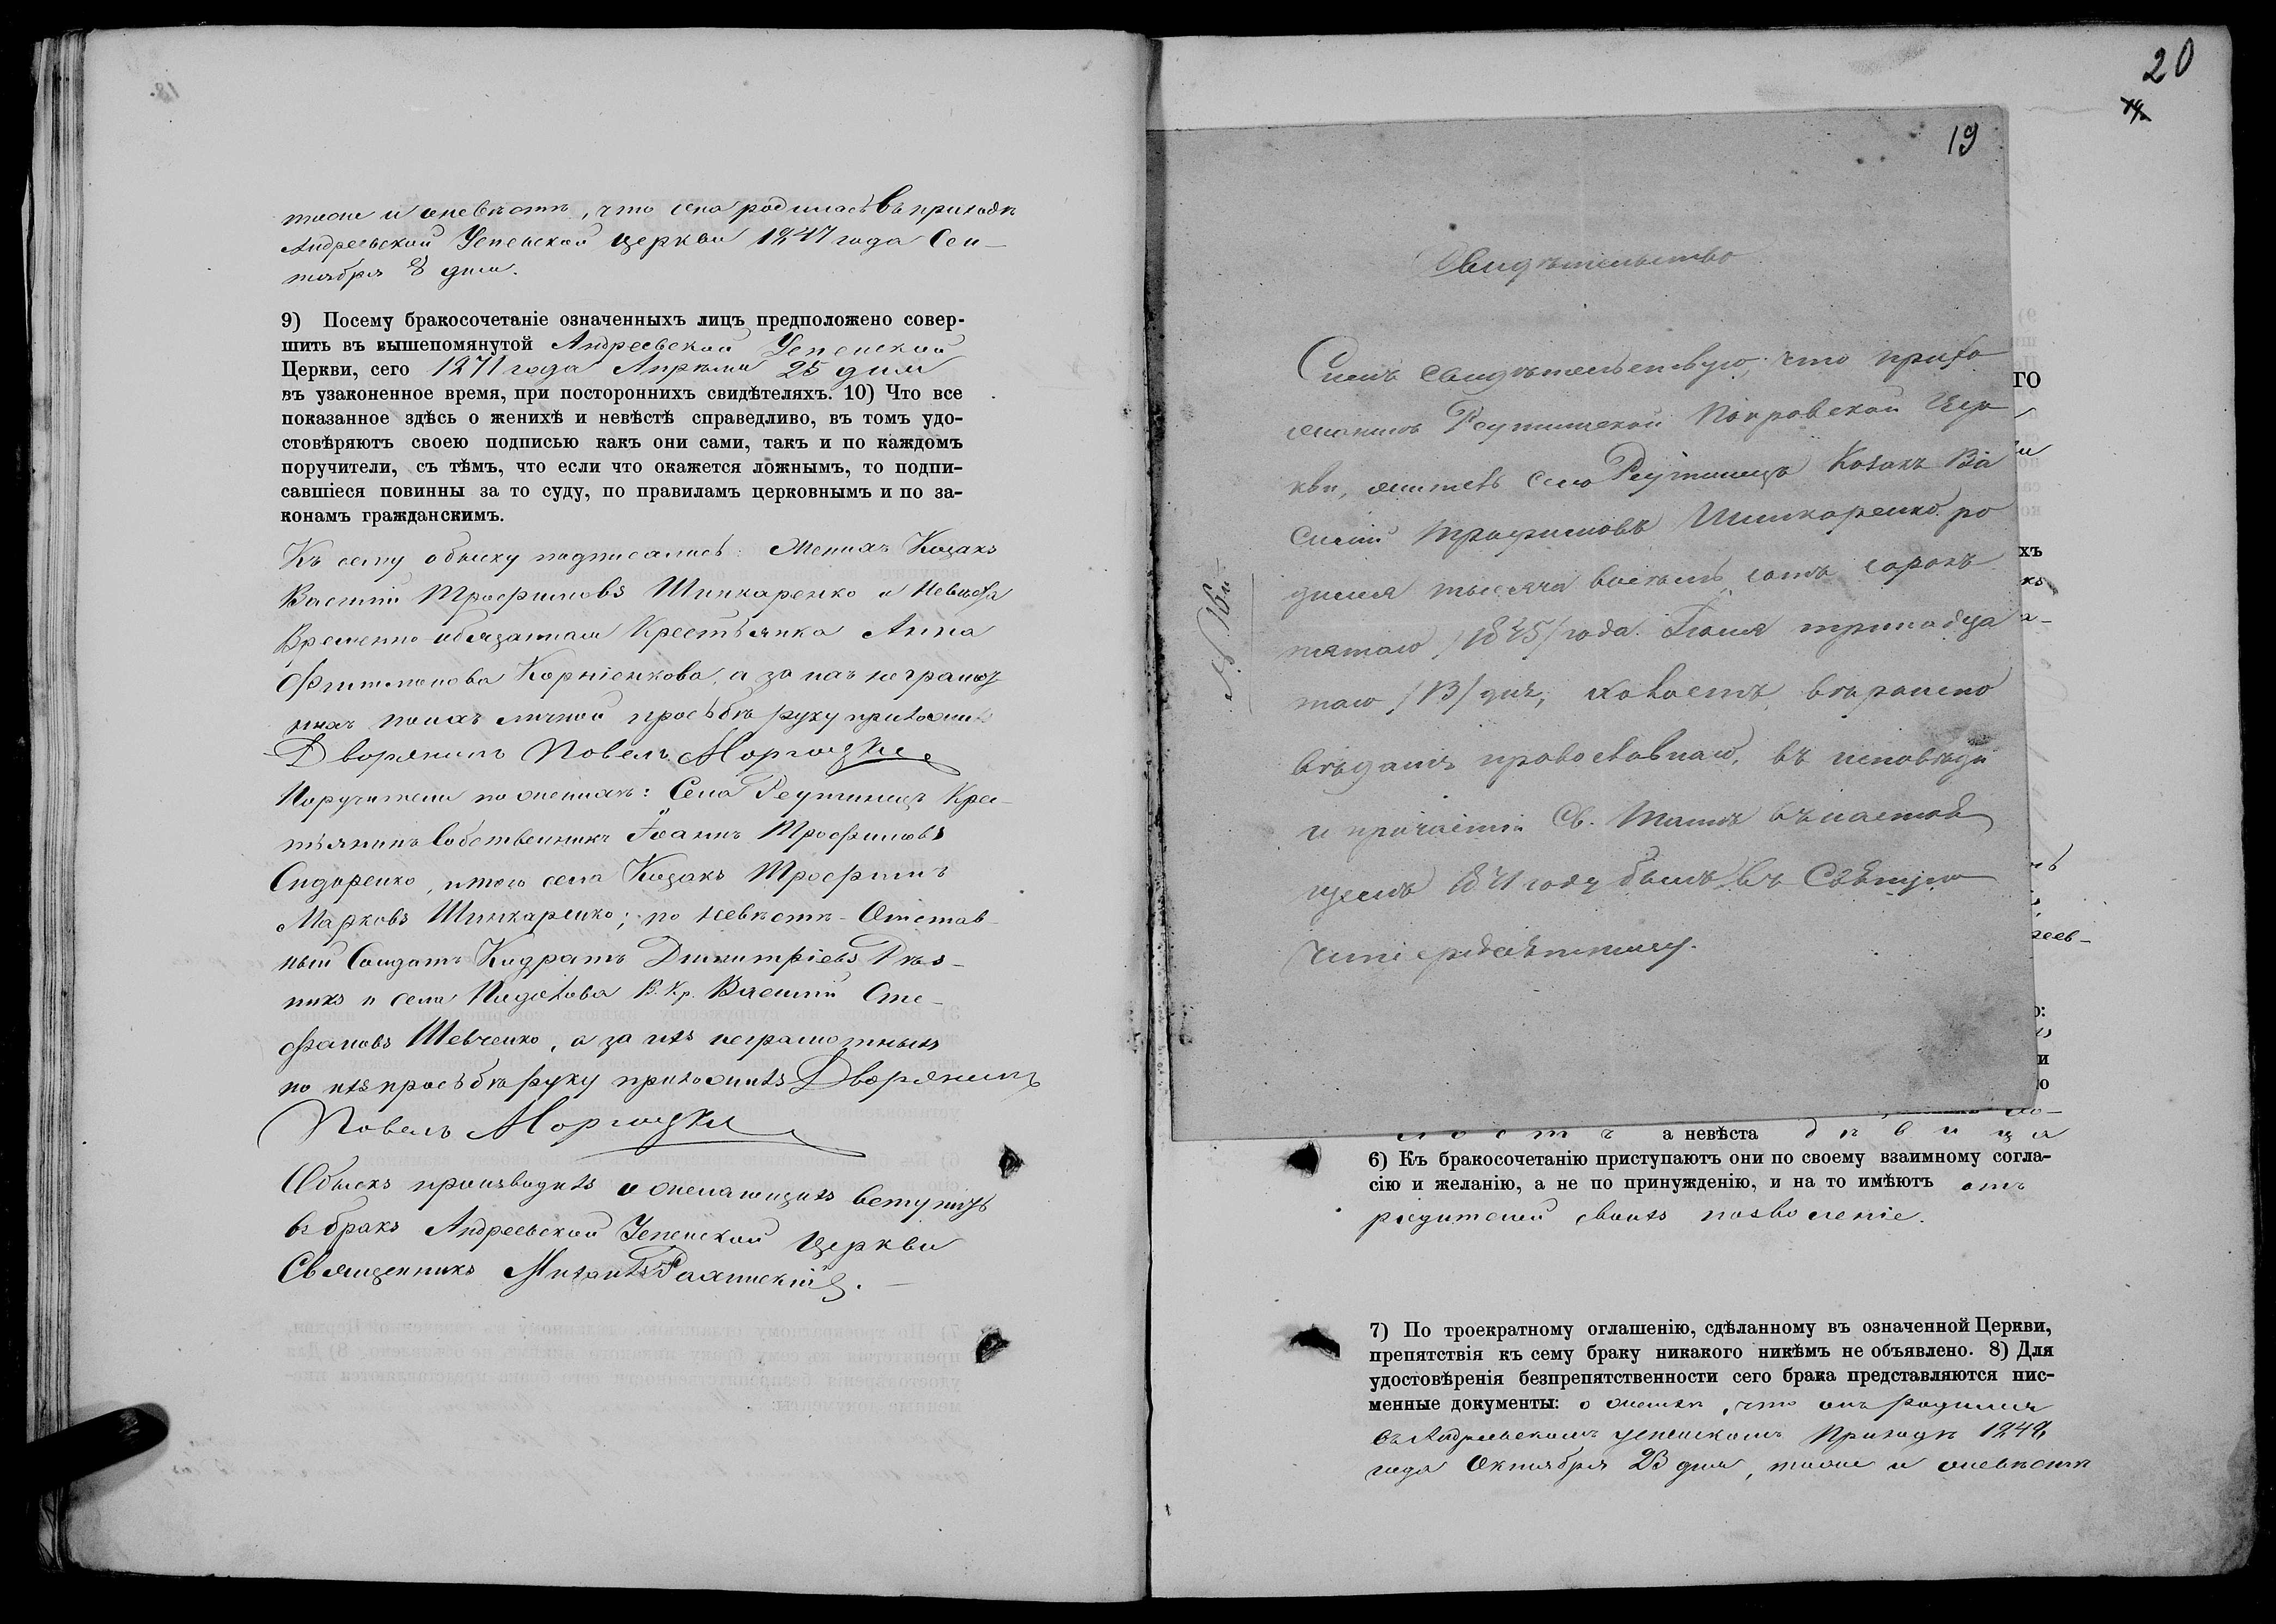 тоже и о невѣстѣ, что она родилась въ приходѣ
Андреевской Успенской церкви 1847 года Сен-
тября 8 дня.
9) Посему бракосочетаніе означенныхъ лицъ предположено совер-
шить въ вышепомянутой Андреевской Успенской
Церкви, сего 1871 года Апрѣля 25 дня
въ узаконенное время, при постороннихъ свидѣтеляхъ. 10) Что все
показанное здѣсь о женихѣ и невѣстѣ справедливо, въ томъ удо-
стовѣряютъ своею подписью какъ они сами, такъ и по каждомъ
поручители, съ тѣмъ, что если что окажется ложнымъ, то подпи-
савшіеся повинны за то суду, по правиламъ церковнымъ и по за-
конамъ гражданскимъ.
Къ сему обыску подписались: Женихъ Козакъ
Василій Трофимовъ Шинкаренко и Невѣста
Временно-обязанная Крестьянка Анна
Филимонова Корніенкова, а за нихъ неграмот
ныхъ по ихъ личной просьбѣ руку приложилъ
Дворянинъ Павелъ
Поручители по женихѣ: Села Реутинецъ Крес-
тьянинъ Собственникъ Іоаннъ Трофимовъ
Сидоренко, и того села Козакъ Трофимъ
Марковъ Шинкаренко; по невѣстѣ - Отстав-
ный Солдатъ Кидратъ Димитріевъ Рѣз-
никъ и села В. Кр. Василій Сте-
фановъ Шевченко, а за ихъ неграмотныхъ
по ихъ просьбѣ руку приложилъ Дворянинъ
Павелъ
Обыскъ производилъ о желающихъ вступить
въ бракъ Андреевской Успенской Церкви
Священникъ Михаилъ
20
19
Свидѣтельство
Симъ свидѣтельствую, что прихо
жанинъ Реутинской Покровской Цер
кви, житель села Реутинецъ Козакъ Ва
силій Трофимовъ Шинкаренко ро
дился тысяча восемь сотъ сорокъ
пятаго /1845/ года Іюля тринадца
таго /13/ дня, холостъ, вѣроиспо
вѣданія православнаго, въ исповѣди
и причастіи Св. Таинъ въ настоя
щемъ 1871 году былъ въ Святую
Четыредесятницу.
ГО
хъ
а невѣста дѣвица
6) Къ бракосочетанію приступаютъ они по своему взаимному согла-
сію и желанію, а не по принужденію, и на то имѣютъ отъ
родителей своихъ позволеніе.
7) По троекратному оглашенію, сдѣланному въ означенной Церкви,
препятствія къ сему браку никакого никѣмъ не объявлено. 8) Для
удостовѣренія безпрепятственности сего брака представляются пис-
менные документы: о женихѣ, что онъ родился
въ Андреевскомъ Успенскомъ Приходѣ
года Октября 23 дня, тоже и о невѣстѣ